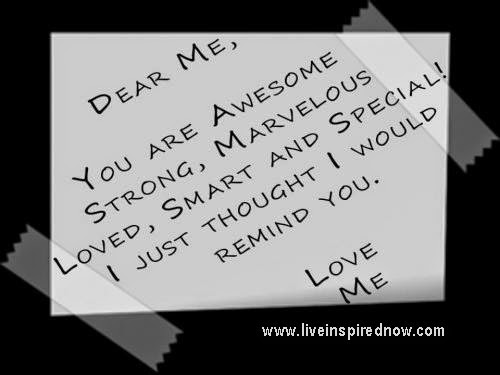 Dear Me,
You are Awesome
Strong, Marvelous
Loved, Smart and Special!
I just thought I would
remind you.
Love
Me
www.liveinspirednow.com